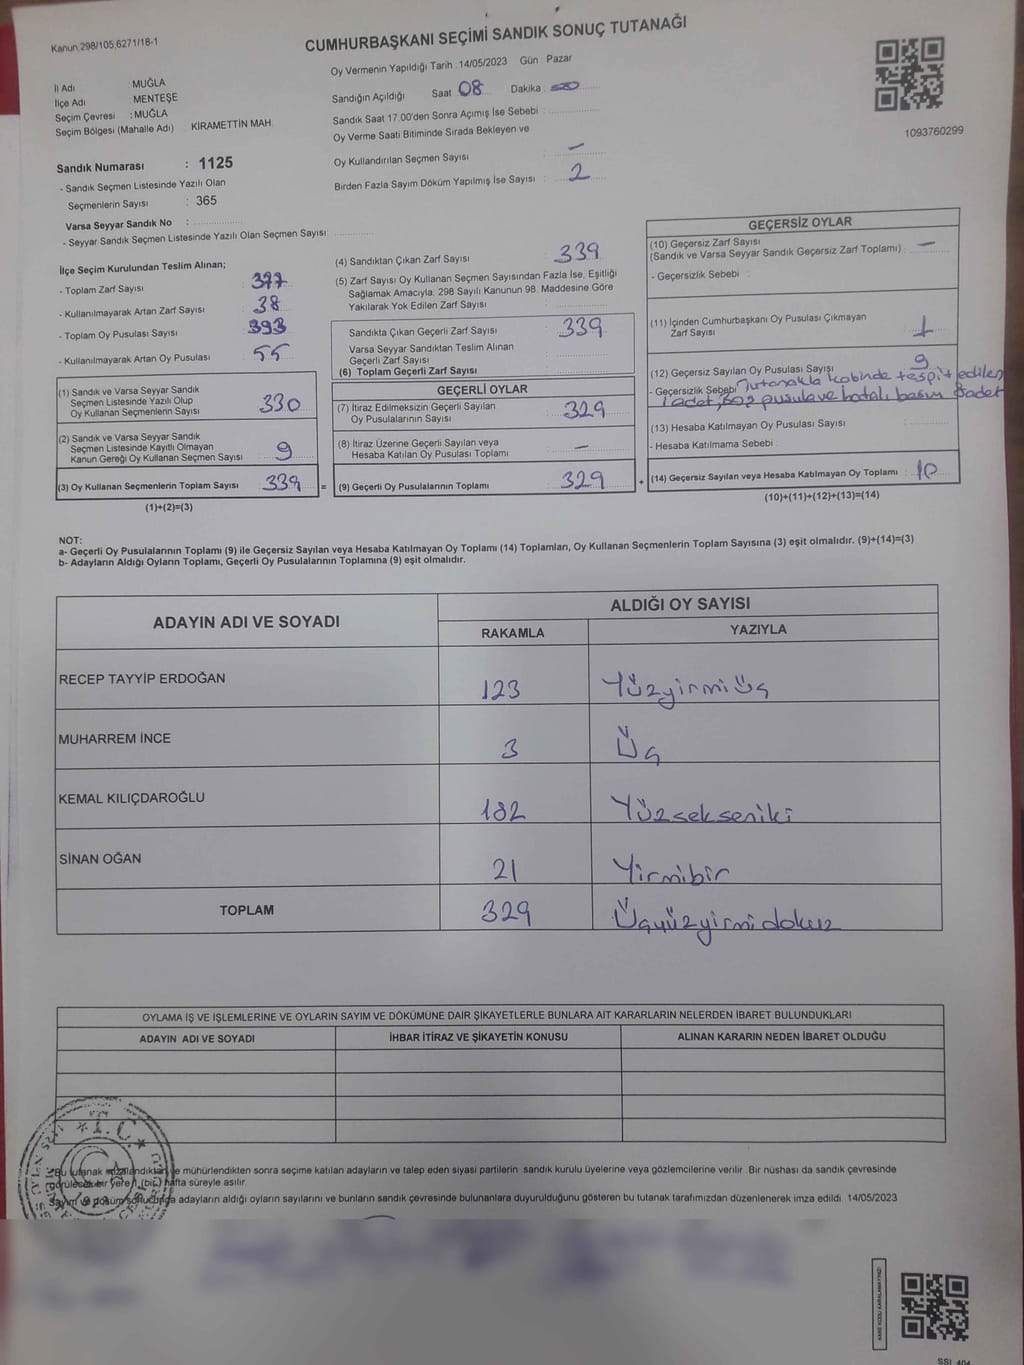 Kanun 298/105,6271/18-1
CUMHURBAŞKANI SEÇİMİ SANDIK SONUÇ TUTANAĞI
Oy Vermenin Yapıldığı Tarih :14/05/2023 Gün : Pazar
İl Adı : MUĞLA
İlçe Adı MENTEŞE
Seçim Çevresi : MUĞLA
Seçim Bölgesi (Mahalle Adı) KİRAMETTİN MAH.
Sandığın Açıldığı Saat 08 Dakika :
Sandık Saat 17.00'den Sonra Açımış İse Sebebi :
Oy Verme Saati Bitiminde Sırada Bekleyen ve
Oy Kullandırılan Seçmen Sayısı : —
Birden Fazla Sayım Döküm Yapılmış İse Sayısı : 2
1093760299
Sandık Numarası : 1125
- Sandık Seçmen Listesinde Yazılı Olan
Seçmenlerin Sayısı : 365
Varsa Seyyar Sandık No :
- Seyyar Sandık Seçmen Listesinde Yazılı Olan Seçmen Sayısı:
İlçe Seçim Kurulundan Teslim Alınan;
- Toplam Zarf Sayısı : 377
- Kullanılmayarak Artan Zarf Sayısı : 38
- Toplam Oy Pusulası Sayısı : 393
- Kullanılmayarak Artan Oy Pusulası : 55
(1) Sandık ve Varsa Seyyar Sandık
Seçmen Listesinde Yazılı Olup
Oy Kullanan Seçmenlerin Sayısı : 330
(2) Sandık ve Varsa Seyyar Sandık
Seçmen Listesinde Kayıtlı Olmayan
Kanun Gereği Oy Kullanan Seçmen Sayısı : 9
(3) Oy Kullanan Seçmenlerin Toplam Sayısı : 339 =
(1)+(2)=(3)
(4) Sandıktan Çıkan Zarf Sayısı : 339
(5) Zarf Sayısı Oy Kullanan Seçmen Sayısından Fazla İse, Eşitliği
Sağlamak Amacıyla; 298 Sayılı Kanunun 98. Maddesine Göre
Yakılarak Yok Edilen Zarf Sayısı :
Sandıkta Çıkan Geçerli Zarf Sayısı : 339
Varsa Seyyar Sandıktan Teslim Alınan
Geçerli Zarf Sayısı
(6) Toplam Geçerli Zarf Sayısı :
GEÇERLİ OYLAR
(7) İtiraz Edilmeksizin Geçerli Sayılan
Oy Pusulalarının Sayısı : 329
(8) İtiraz Üzerine Geçerli Sayılan veya
Hesaba Katılan Oy Pusulası Toplamı : —
(9) Geçerli Oy Pusulalarının Toplamı : 329 +
GEÇERSİZ OYLAR
(10) Geçersiz Zarf Sayısı
(Sandık ve Varsa Seyyar Sandık Geçersiz Zarf Toplamı) : —
- Geçersizlik Sebebi :
(11) İçinden Cumhurbaşkanı Oy Pusulası Çıkmayan
Zarf Sayısı : 1
(12) Geçersiz Sayılan Oy Pusulası Sayısı : 9
- Geçersizlik Sebebi Tutanakla kabinde tespit edilen
1 adet, pusula ve hatalı basım 8 adet
(13) Hesaba Katılmayan Oy Pusulası Sayısı :
- Hesaba Katılmama Sebebi :
(14) Geçersiz Sayılan veya Hesaba Katılmayan Oy Toplamı : 10
(10)+(11)+(12)+(13)=(14)
NOT:
a- Geçerli Oy Pusulalarının Toplamı (9) ile Geçersiz Sayılan veya Hesaba Katılmayan Oy Toplamı (14) Toplamları, Oy Kullanan Seçmenlerin Toplam Sayısına (3) eşit olmalıdır. (9)+(14)=(3)
b- Adayların Aldığı Oyların Toplamı, Geçerli Oy Pusulalarının Toplamına (9) eşit olmalıdır.
ADAYIN ADI VE SOYADI
ALDIĞI OY SAYISI
RAKAMLA YAZIYLA
RECEP TAYYİP ERDOĞAN 123 Yüzyirmiüç
MUHARREM İNCE 3 Üç
KEMAL KILIÇDAROĞLU 182 Yüzsekseniki
SİNAN OĞAN 21 Yirmibir
TOPLAM 329 Üçyüzyirmidokuz
OYLAMA İŞ VE İŞLEMLERİNE VE OYLARIN SAYIM VE DÖKÜMÜNE DAİR ŞİKAYETLERLE BUNLARA AİT KARARLARIN NELERDEN İBARET BULUNDUKLARI
ADAYIN ADI VE SOYADI İHBAR İTİRAZ VE ŞİKAYETİN KONUSU ALINAN KARARIN NEDEN İBARET OLDUĞU
T.C.
Bu tutanak imzalandıktan ve mühürlendikten sonra seçime katılan adayların ve talep eden siyasi partilerin sandık kurulu üyelerine veya gözlemcilerine verilir. Bir nüshası da sandık çevresinde
görülecek bir yere 1 (bir) hafta süreyle asılır.
Sayım ve döküm sonucunda adayların aldığı oyların sayılarını ve bunların sandık çevresinde bulunanlara duyurulduğunu gösteren bu tutanak tarafımızdan düzenlenerek imza edildi. 14/05/2023
KARE KODU KARALAMAYINIZ!